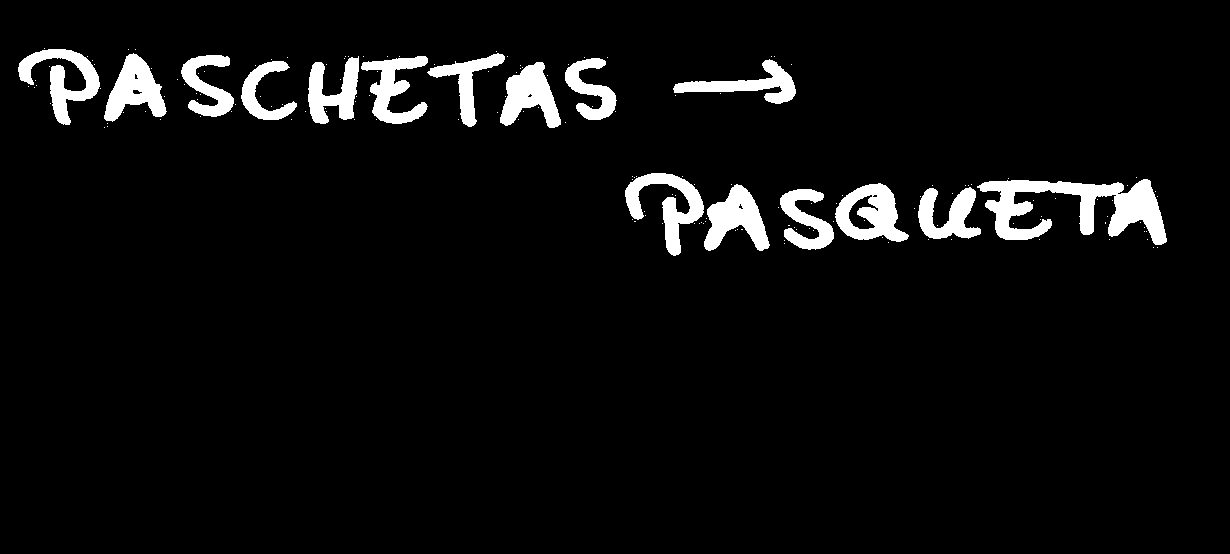 PASCHETAS →
PASQUETA